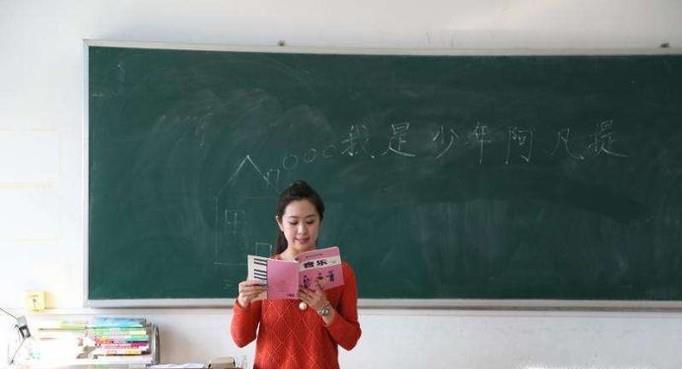 我是少年阿凡提
音乐